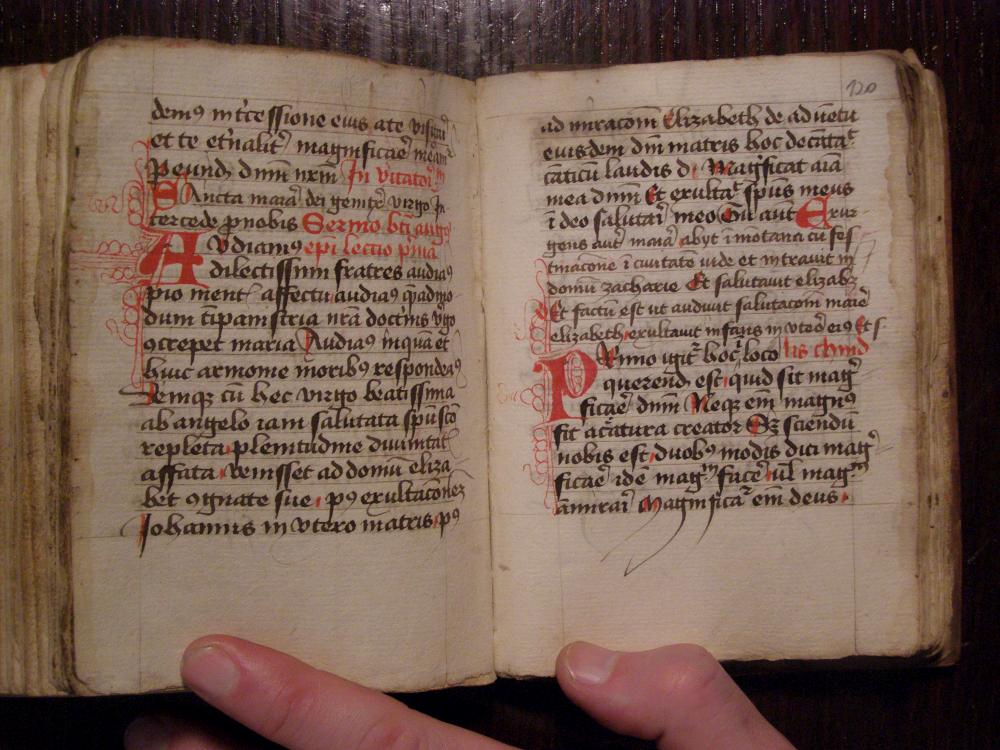 demꝰ int̾cessione eius a te visitari
et te et̾nalit̾ magnificare
Dominū nr̄m In vitatoriū
Sancta maria dei genitrix virgo in
tercede p̱ nobis Sermo bti augꝰ
Audiamꝰ epi lectio p̄ma
dilectissimi fratres audiaꝰ
pio mentꝭ affectu audiaꝰ
dum
ꝯcrepet maria Audiaꝰ inquā et
huic armonie moribꝰ respondeaꝰ
Deniqꝫ cū hec virgo beatissima
ab angelo iam salutata spū sc̄o
repleta plenitudine diuinitatꝭ
afflata venisset ad domū eliza
bet ꝯgnate sue pꝰ exultac̄onem
Johannis in vtero matris pꝰ
120
Elizabeth de aduētu
eiusdem dn̄i matris hoc decātat
cāticū laudis d Magn̄ficat aīa
mea dnm̄ Et exultat sp̄us meus
ī deo salutari meo Exur
gens aut̄ maria abyt ī mōtana cū fes
tinac̄one ī ciuitatē iude et intrauit in
domū zacharie Et salutauit elizab
Et factū est ut audiuit salutac̄om marie
elizabeth exultauit infans in vtero eiꝰ Et
Primo igit̄ hoc loco
querendū est quid sit mag
ficare dnm̄ Neqꝫ em̄ magnꝰ
fit a c̾atura creator Sꝫ sciendū
nobis est duobꝰ modis dici mag
ficare idē mag facere ul̄ mag
ānirari Magnificat em̄ deus